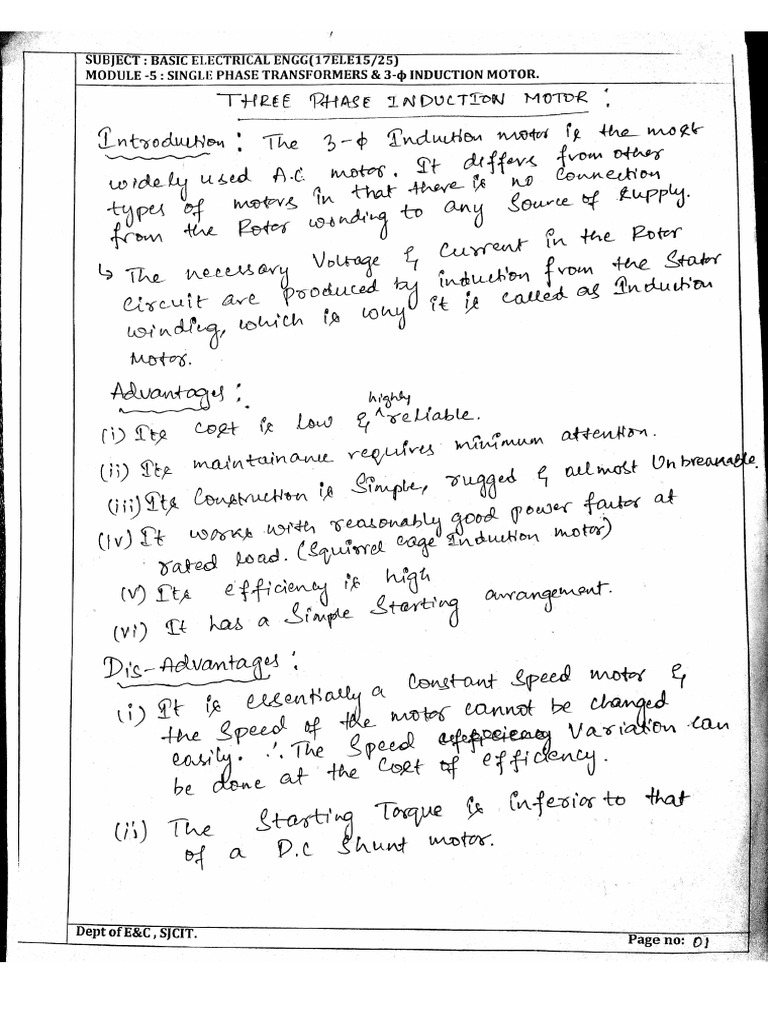 SUBJECT : BASIC ELECTRICAL ENGG(17ELE15/25)
MODULE -5 : SINGLE PHASE TRANSFORMERS & 3-ф INDUCTION MOTOR.
THREE PHASE INDUCTION MOTOR :
Introduction : The 3-ф Induction motor is the most
widely used A.C motor. It differs from other
types of motors in that there is no connection
from the Rotor winding to any Source of Supply.
↳ The necessary Voltage & Current in the Rotor
Circuit are produced by induction from the Stator
winding, which is why it is called as Induction
Motor.
Advantages :
(i) Its cost is low & ^highly reliable.
(ii) Its maintainance requires minimum attention.
(iii) Its Construction is Simple, rugged & allmost Unbreanable.
(iv) It works with reasonably good power factor at
rated load. (Squirrel cage Induction motor)
(v) Its efficiency is high
(vi) It has a Simple Starting arrangement.
Dis-Advantages :
(i) It is essentially a constant speed motor &
the speed of the motor cannot be changed
easily. ∴ The Speed Variation can
be done at the cost of efficiency.
(ii) The Starting Torque is inferior to that
of a D.C Shunt motor.
Dept of E&C , SJCIT.
Page no: 01